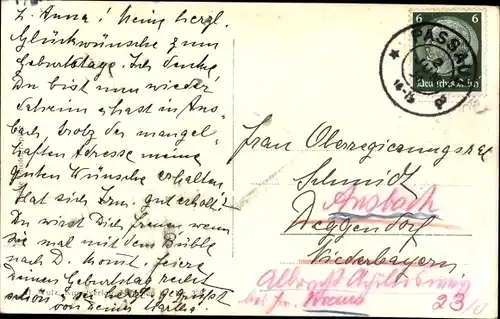 L. Anna! Meine herzl.
Glückwünsche zum
Geburtstage. Ich denke
Du bist nun wieder
daheim & hast in Ans-
bach trotz der mangel-
haften Adresse meine
guten Wünsche erhalten.
Hat sich Irm. gut erholt?
Du wirst Dich freuen wenn
sie mal mit dem Büble
nach D. kommt. Feiere
Deinen Geburtstag recht
& sei herzl. gegrüßt
von Deiner
6
PASSAU
Deutsches Reich
Frau Oberregierungsrat
Schmidt
Ansbach
Deggendorf
Niederbayern
Albrecht Achilles
bei Fr.
23